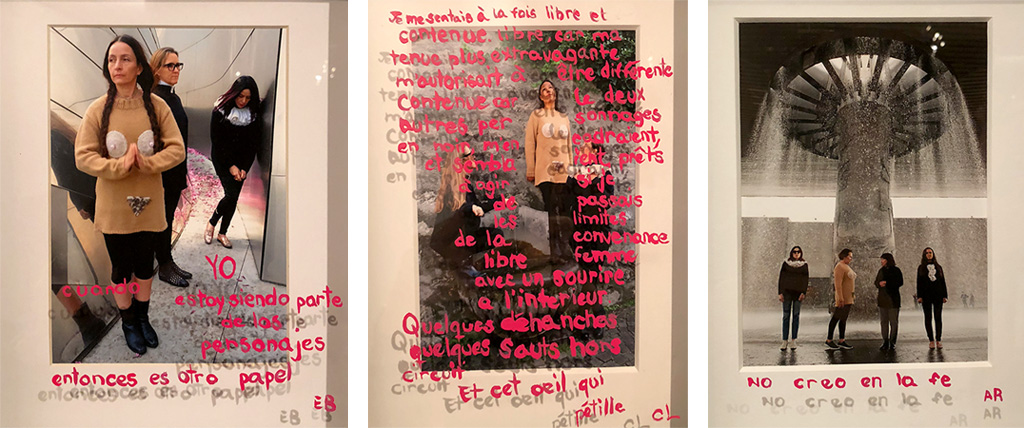 YO
cuando
estoy siendo parte
de los
personajes
entonces es otro papel
EB
Je me sentais à la fois libre et
contenue libre, car ma
tenue plus extravagante
m'autorisait à être différente
Contenue car le deux
autres per sonnages
en noir, m'en cadraient,
et semblo ient prêts
à agir si je
de passais
les limites
de la convenance
libre femme
avec un sourire
a l'interieur
Quelques déhanches
quelques sauts hors
circuit
Et cet oeil qui
pétille
CL
NO creo en la fe
AR